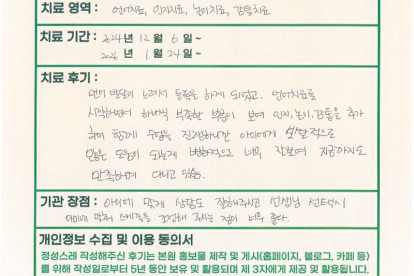 치료 영역 : 언어치료, 인지치료, 놀이치료, 감통치료
치료 기간 : 2024년 12월 6일 ~
2026년 1월 24일 ~
치료 후기 :
언어 발달이 느려서 등록을 하게 되었고. 언어치료를
시작하면서 하나씩 부족한 부분이 보여 인지,놀이,감통을 추가
하여 함께 수업을 진행하니깐 아이에게 발달적으로
많은 도움이 되는게 변화적으로 너무 잘보여 지금까지도
만족하며 다니고 있음.
기관 장점 : 아이에 맞게 상담도 잘해주시고 선생님 선택시
아이와 맞춰 스케줄을 조정해 주시는 점이 너무 좋다.
개인정보 수집 및 이용 동의서
정성스레 작성해주신 후기는 본원 홍보물 제작 및 게시(홈페이지, 블로그, 카페 등)
를 위해 작성일로부터 5년 동안 보유 및 활용되며 제 3자에게 제공 및 활용됩니다.